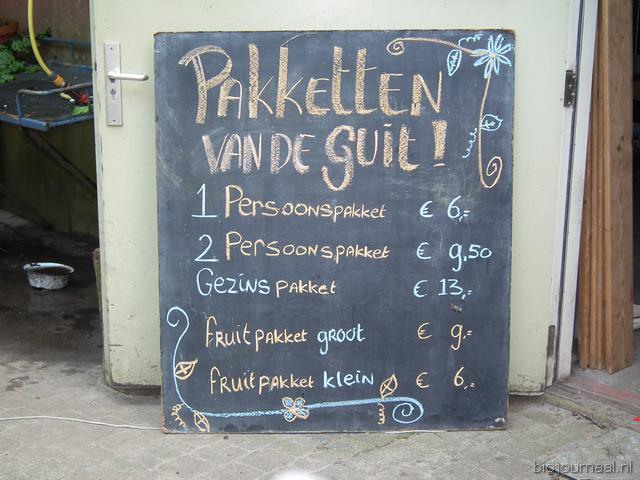 PAKKETTEN
VAN DE GUIT!
1 PERSOONSPAKKET € 6,=
2 PERSOONSPAKKET € 9.50
GEZINSPAKKET € 13,=
FRUITPAKKET GROOT € 9,=
FRUITPAKKET KLEIN € 6,=
biojournaal.nl